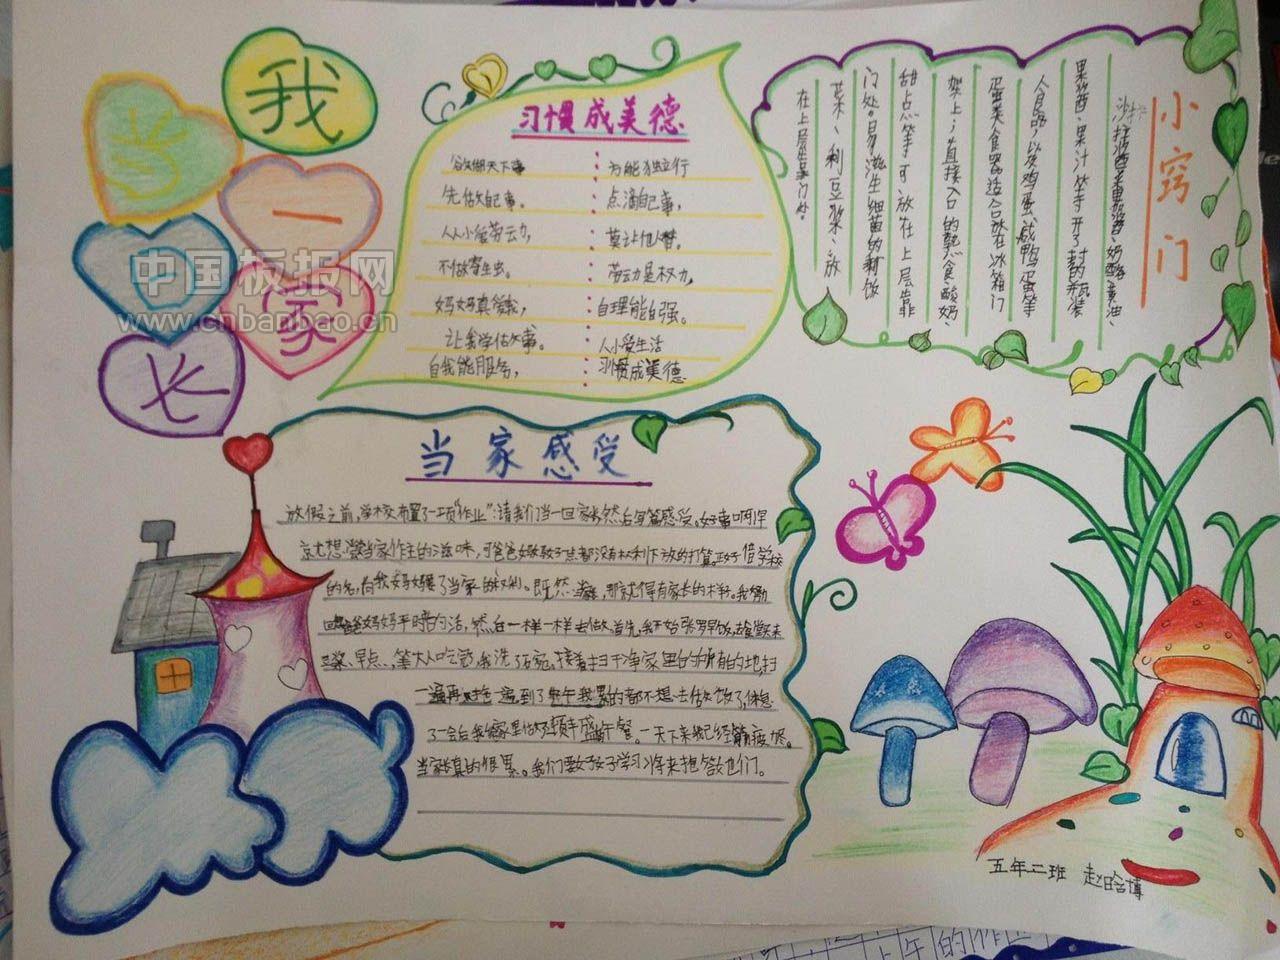 我当一回家长
中国板报网
www.cnbanbao.cn
习惯成美德
欲做天下事
先做自己事。
人人小爱劳动,
不做寄生虫。
妈妈真爱我,
让我学做事。
自我能服务,
为能独立行
点滴自己事,
莫让他人替。
劳动是权力,
自理能自强。
人小爱生活
习惯成美德
小窍门
沙拉酱、果酱、奶酪、黄油、
果酱、果汁等开了封的瓶装
食品,以及鸡蛋、咸鸭蛋等
蛋类食品适合放在冰箱门
架上;直接入口的熟食、酸奶、
甜点等可放在上层靠
门处。易滋生细菌的剩饭
菜、利豆浆、放
在上层靠门处。
当家感受
放假之前,学校布置了一项"作业":请我们当一回家长然后写篇感受。好事啊!早
就想当家作主的滋味,可爸爸妈妈就是都没有权利下放的打算。正好借学校
的名,向我妈妈要了当家的权利。既然当家,那就得有家长的样。我
爸爸妈妈平时的活,然后一样一样去做。首先,我开始张罗早饭,去食堂买来
豆浆、早点,等大人吃完,我洗了碗,接着扫干净家里的所有的地,扫
一遍再拖一遍到了中午我累的都不想去做饭了,休息
了一会后我给家里做好顿丰盛午餐。一天下来已经筋疲力尽。
当家真的很累。我们要好好学习将来报答他们。
五年二班 赵晗博